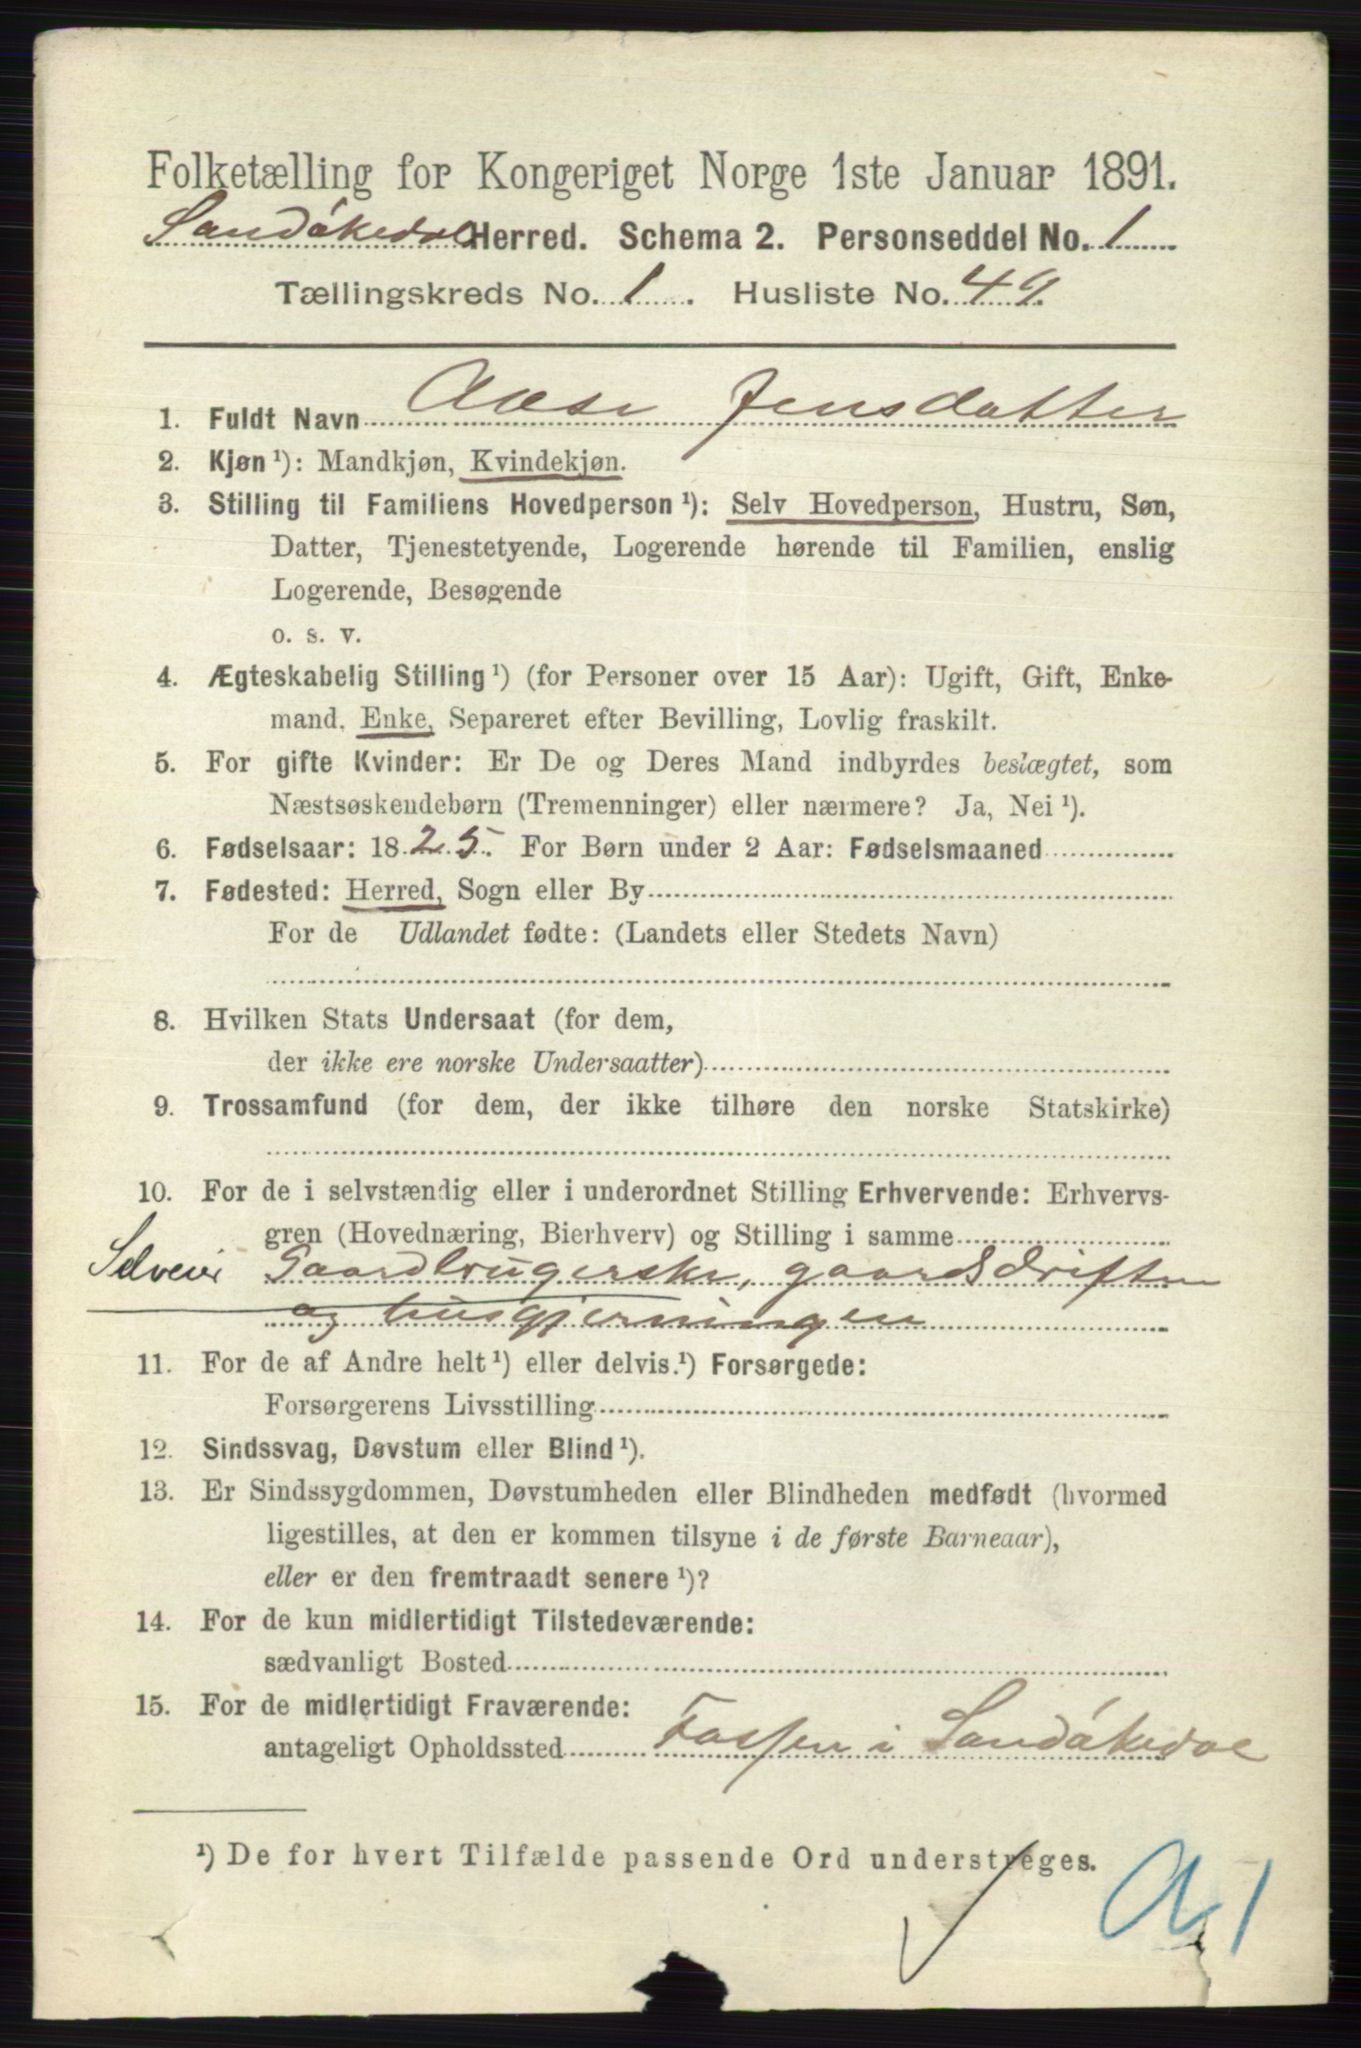 Folketælling for Kongeriget Norge 1ste Januar 1891.
Sandökedal Herred. Schema 2. Personseddel No. 1
Tællingskreds No. 1. Husliste No. 49.
1. Fuldt Navn Aase Jensdatter
2. Kjøn ¹): Mandkjøn, Kvindekjøn.
3. Stilling til Familiens Hovedperson ¹): Selv Hovedperson, Hustru, Søn,
Datter, Tjenestetyende, Logerende hørende til Familien, enslig
Logerende, Besøgende
o. s. v.
4. Ægteskabelig Stilling ¹) (for Personer over 15 Aar): Ugift, Gift, Enke-
mand, Enke, Separeret efter Bevilling, Lovlig fraskilt.
5. For gifte Kvinder: Er De og Deres Mand indbyrdes beslægtet, som
Næstsøskendebørn (Tremenninger) eller nærmere? Ja, Nei ¹).
6. Fødselsaar: 1825. For Børn under 2 Aar: Fødselsmaaned
7. Fødested: Herred, Sogn eller By
For de Udlandet fødte: (Landets eller Stedets Navn)
8. Hvilken Stats Undersaat (for dem,
der ikke ere norske Undersaatter)
9. Trossamfund (for dem, der ikke tilhøre den norske Statskirke)
10. For de i selvstændig eller i underordnet Stilling Erhvervende: Erhvervs-
gren (Hovednæring, Bierhverv) og Stilling i samme
Selveier Gaardbrugerske, gaardsdriften
og husgjerningen
11. For de af Andre helt ¹) eller delvis.¹) Forsørgede:
Forsørgerens Livsstilling
12. Sindssvag, Døvstum eller Blind ¹).
13. Er Sindssygdommen, Døvstumheden eller Blindheden medfødt (hvormed
ligestilles, at den er kommen tilsyne i de første Barneaar),
eller er den fremtraadt senere ¹)?
14. For de kun midlertidigt Tilstedeværende:
sædvanligt Bosted
15. For de midlertidigt Fraværende:
antageligt Opholdssted i Sandökedal
¹) De for hvert Tilfælde passende Ord understreges.
A 1